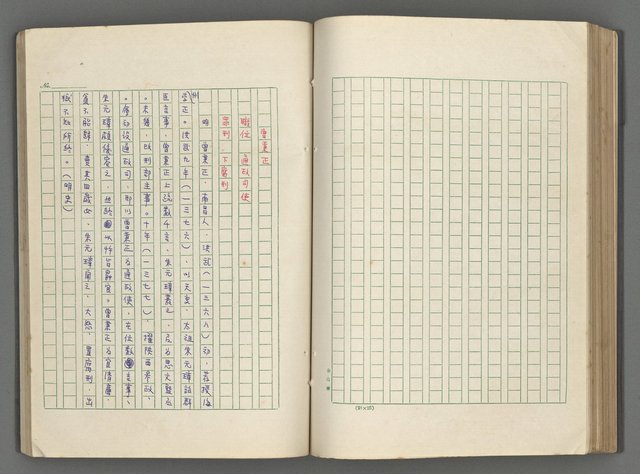 曾秉正
職位　通政司使
宗刑　下腐刑
明，曾秉正，南昌人，洪武（一三六八）初，荐授海州
學正。洪武九年（一三七六），以天变，太祖朱元璋詔群
臣言事，曾秉正上疏數千言，朱元璋嘉之，召为思文監丞
。未幾，改刑部主事。十年（一三七七），擢陝西参政，
。會初设通政司，即以曾秉正为通政使，在位數言事，
朱元璋頗優容之，然終以忤旨罷官。曾秉正为官清廉，
貧不能歸，賣其四歲女，朱元璋聞之，大怒，置腐刑，出
後不知所終。（明史）
(21×25)